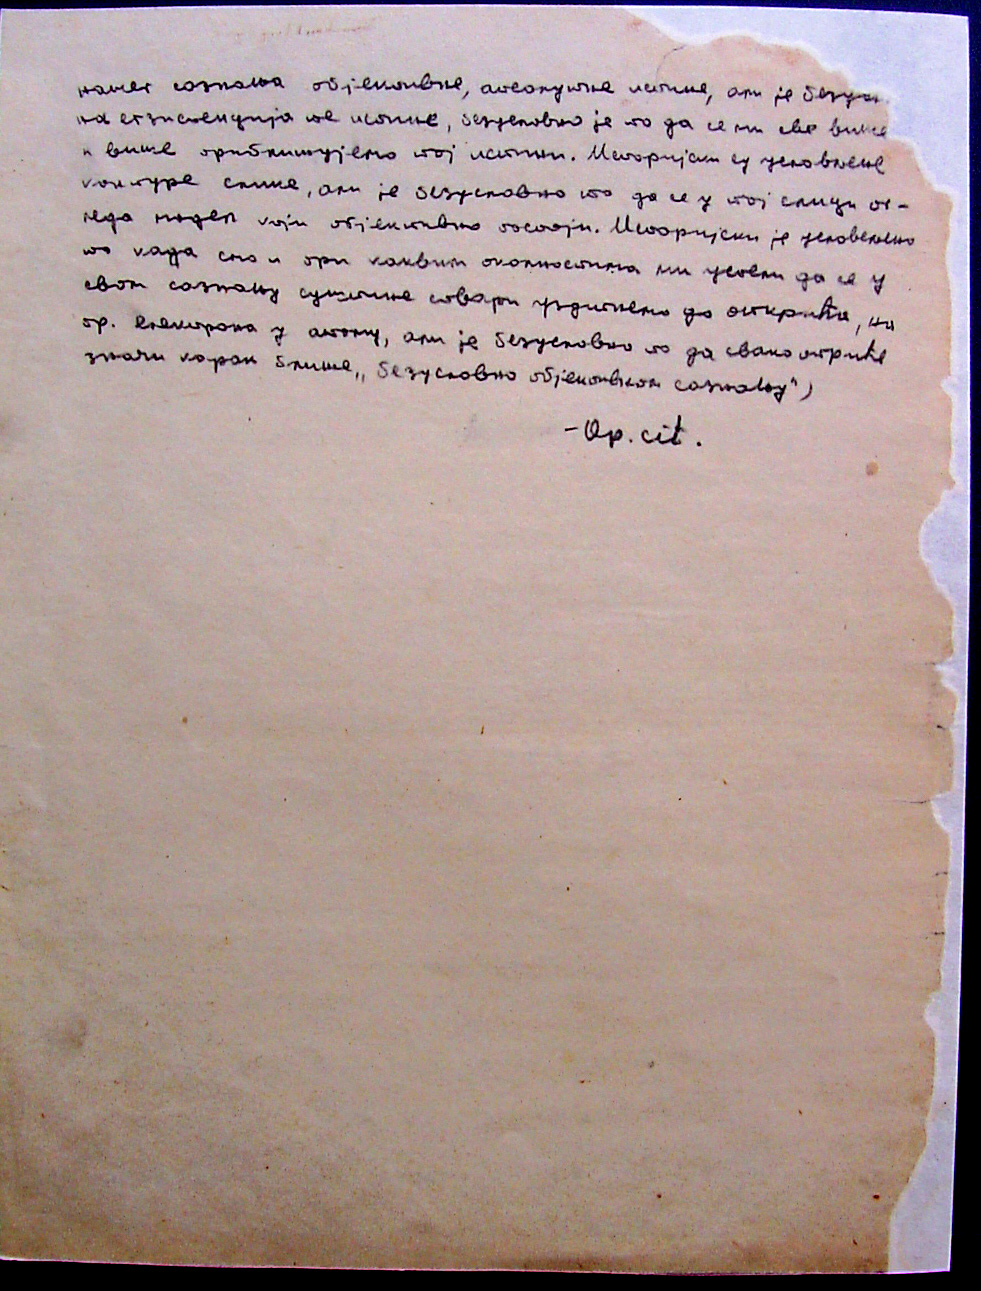 нашег сазнања објективне, апсолутне истине, али је безуслов
на егзистенција те истине, безусловно је то да се ми све више
и више приближујемо тој истини. Историјски су условљене
контуре слике, али је безусловно то да се у тој слици ог-
леда модел који објективно постоји. Историјски је условљено
то када смо и при каквим околностима ми успели да се у
свом сазнању суштине ствари уздигнемо до открића, на
пр. електрона у атому, али је безусловно то да свако откриће
значи корак ближе „безусловно објективном сазнању")
-Op. cit.